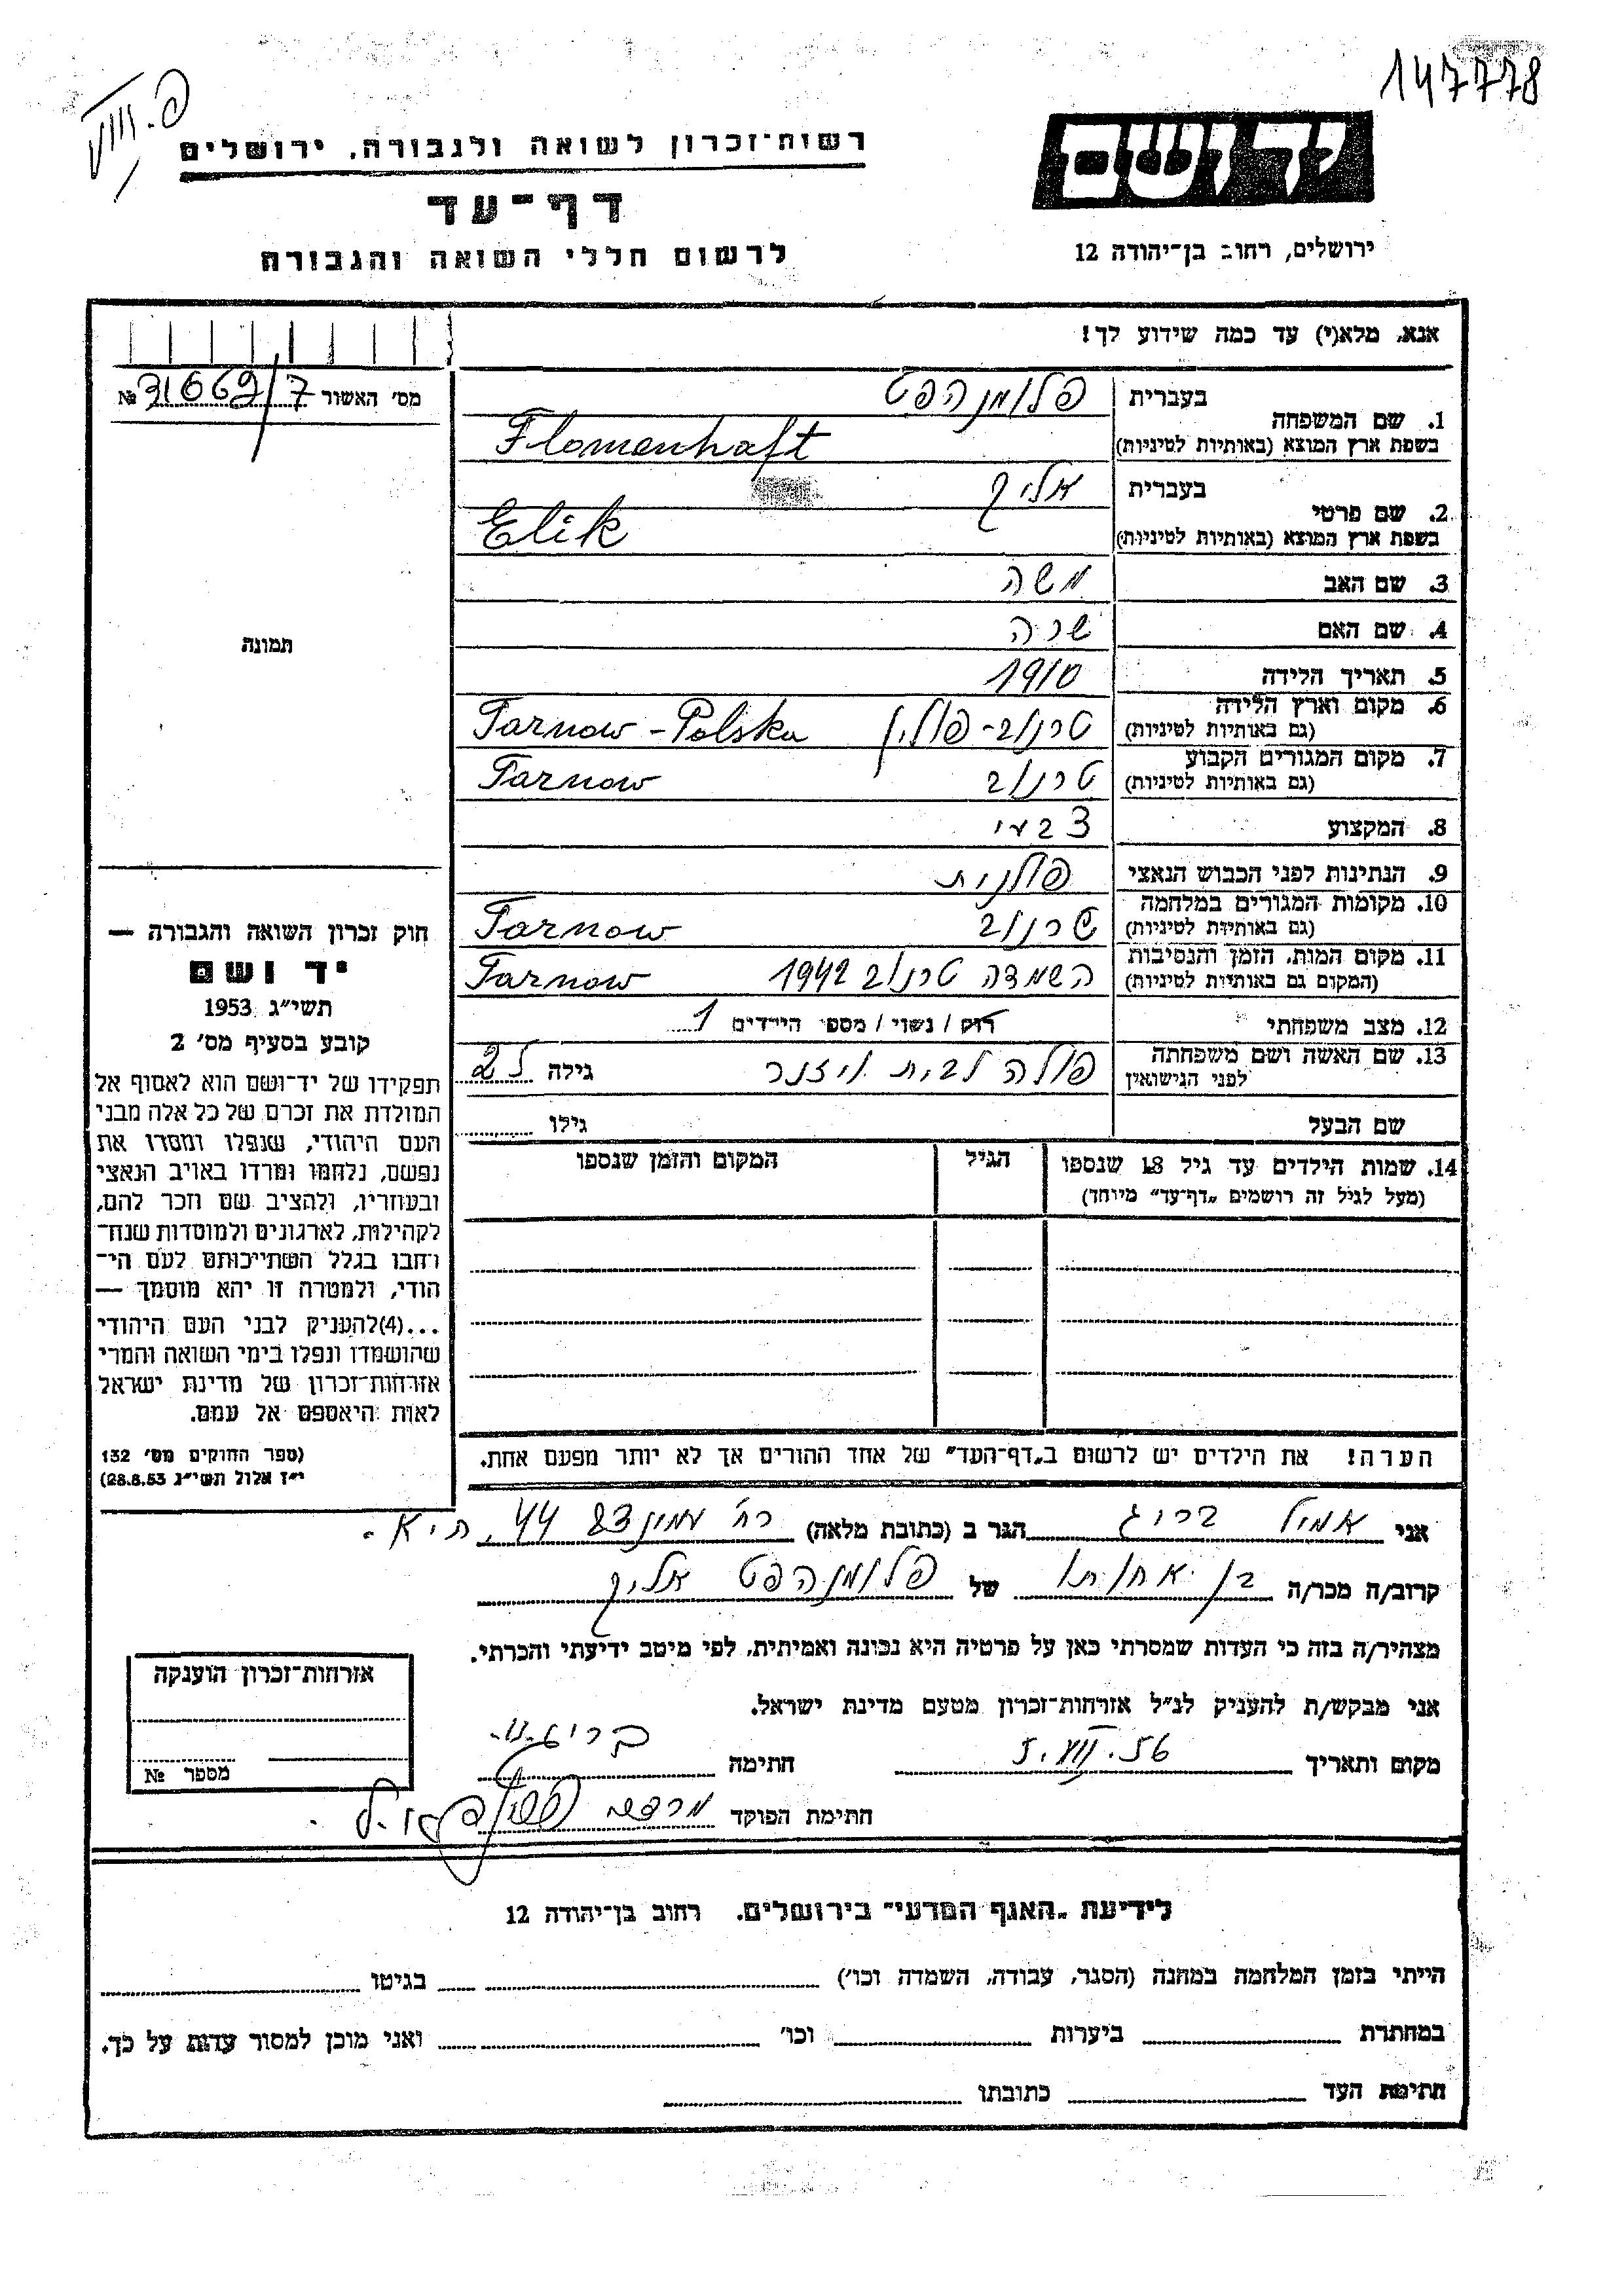 147778
פ. VIII
ידושם
ירושלים, רחוב בן־יהודה 12
רשות־זכרון לשואה ולגבורה, ירושלים
דף־עד
לרשום חללי השואה והגבורה
אנא, מלא(י) עד כמה שידוע לך!
מס׳ האשור 31669/7 №
תמונה
1. שם המשפחה בעברית פלומנהפט
בשפת ארץ המוצא (באותיות לטיניות) Flomenhaft
2. שם פרטי בעברית אליק
בשפת ארץ המוצא (באותיות לטיניות) Elik
3. שם האב משה
4. שם האם שרה
5. תאריך הלידה 1910
6. מקום וארץ הלידה טרנוב-פולין Tarnow - Polska
(גם באותיות לטיניות)
7. מקום המגורים הקבוע טרנוב Tarnow
(גם באותיות לטיניות)
8. המקצוע צבעי
9. הנתינות לפני הכבוש הנאצי פולנית
10. מקומות המגורים במלחמה טרנוב Tarnow
(גם באותיות לטיניות)
11. מקום המות, הזמן והנסיבות השמדה טרנוב 1942 Tarnow
(המקום גם באותיות לטיניות)
12. מצב משפחתי רווק / נשוי / מספר הילדים 1
13. שם האשה ושם משפחתה פולה לבית ויזנר גילה
לפני הנישואין
שם הבעל גילו
14. שמות הילדים עד גיל 18 שנספו הגיל המקום והזמן שנספו
(מעל לגיל זה רושמים „דף־עד״ מיוחד)
הערה! את הילדים יש לרשום ב„דף־העד״ של אחד ההורים אך לא יותר מפעם אחת.
חוק זכרון השואה והגבורה —
יד ושם
תשי״ג 1953
קובע בסעיף מס׳ 2
תפקידו של יד־ושם הוא לאסוף אל
המולדת את זכרם של כל אלה מבני
העם היהודי, שנפלו ומסרו את
נפשם, נלחמו ומרדו באויב הנאצי
ובעוזריו, ולהציב שם וזכר להם,
לקהילות, לארגונים ולמוסדות שנח־
רחבו בגלל השתייכותם לעם הי־
הודי, ולמטרה זו יהא מוסמך —
...(4)להעניק לבני העם היהודי
שהושמדו ונפלו בימי השואה והמרי
אזרחות־זכרון של מדינת ישראל
לאות היאספם אל עמם.
(ספר החוקים מס׳ 132
י״ז אלול תשי״ג 28.8.53)
אני אמיל בריג הגר ב (כתובת מלאה) רח׳ 44, ת״א.
קרוב/ה מכר/ה בן אחותו של פלומנהפט אליק
מצהיר/ה בזה כי העדות שמסרתי כאן על פרטיה היא נכונה ואמיתית, לפי מיטב ידיעתי והכרתי.
אני מבקש/ת להעניק לנ״ל אזרחות־זכרון מטעם מדינת ישראל.
מקום ותאריך חתימה
חתימת הפוקד
אזרחות־זכרון הוענקה
מספר №
לידיעת „האגף המדעי״ בירושלים, רחוב בן־יהודה 12
הייתי בזמן המלחמה במחנה (הסגר, עבודה, השמדה וכו׳) בגיטו
במחתרת ביערות וכו׳ ואני מוכן למסור עדות על כך.
חתימת העד כתובתו